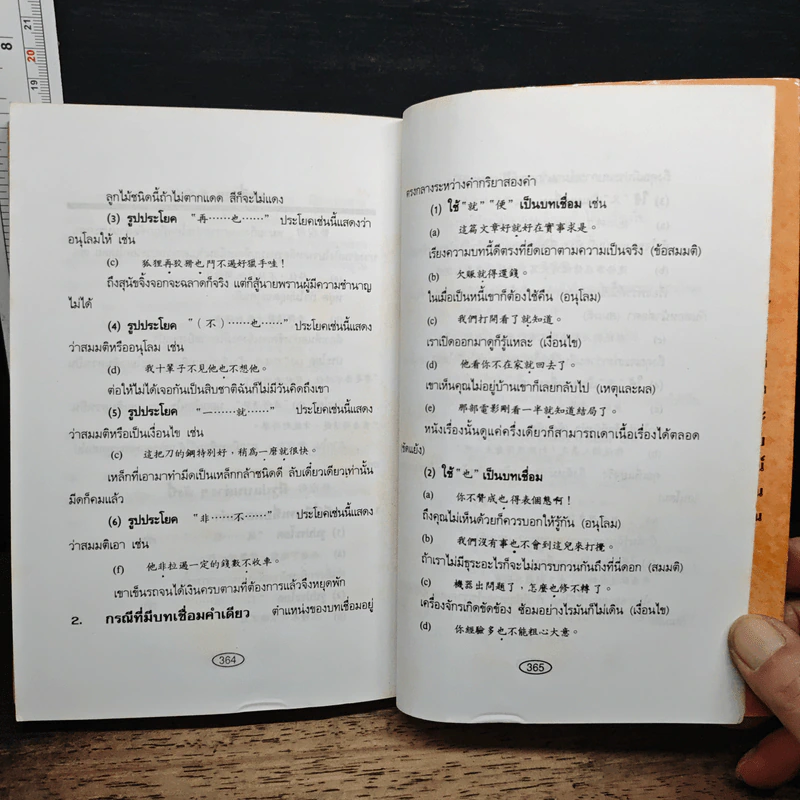 ลูกไม้ชนิดนี้ถ้าไม่ตากแดด สีก็จะไม่แดง
(3) รูปประโยค "再……也……" ประโยคเช่นนี้แสดงว่า
อนุโลมให้ เช่น
(c) 狐狸再狡猾也鬥不過好獵手哇！
ถึงสุนัขจิ้งจอกจะฉลาดก็จริง แต่ก็สู้นายพรานผู้มีความชำนาญ
ไม่ได้
(4) รูปประโยค "（不）……也……" ประโยคเช่นนี้แสดง
ว่าสมมติหรืออนุโลม เช่น
(d) 我十輩子不見他也不想他。
ต่อให้ไม่ได้เจอกันเป็นสิบชาติฉันก็ไม่มีวันคิดถึงเขา
(5) รูปประโยค "一……就……" ประโยคเช่นนี้แสดง
ว่าสมมติหรือเป็นเงื่อนไข เช่น
(c) 這把刀的鋼特別好，稍為一磨就很快。
เหล็กที่เอามาทำมีดเป็นเหล็กกล้าชนิดดี ลับเดี๋ยวเดียวเท่านั้น
มีดก็คมแล้ว
(6) รูปประโยค "非……不……" ประโยคเช่นนี้แสดง
ว่าสมมติเอา เช่น
(f) 他非拉過一定的錢數不收車。
เขาเข็นรถจนได้เงินครบตามที่ต้องการแล้วจึงหยุดพัก
2. กรณีที่มีบทเชื่อมคำเดียว ตำแหน่งของบทเชื่อมอยู่
364
ตรงกลางระหว่างคำกริยาสองคำ
(1) ใช้ "就" "便" เป็นบทเชื่อม เช่น
(a) 這篇文章好就好在實事求是。
เรียงความบทนี้ดีตรงที่ยึดเอาตามความเป็นจริง (ข้อสมมติ)
(b) 欠賬就得還錢。
ในเมื่อเป็นหนี้เขาก็ต้องใช้คืน (อนุโลม)
(c) 我們打開看了就知道。
เราเปิดออกมาดูก็รู้แหละ (เงื่อนไข)
(d) 他看你不在家就回去了。
เขาเห็นคุณไม่อยู่บ้านเขาก็เลยกลับไป (เหตุและผล)
(e) 那部電影剛看一半就知道結局了。
หนังเรื่องนั้นดูแค่ครึ่งเดียวก็สามารถเดาเนื้อเรื่องได้ตลอด
(ขัดแย้ง)
(2) ใช้ "也" เป็นบทเชื่อม
(a) 你不贊成也得表個態啊！
ถึงคุณไม่เห็นด้วยก็ควรบอกให้รู้กัน (อนุโลม)
(b) 我們沒有事也不會到這兒來打攪。
ถ้าเราไม่มีธุระอะไรก็จะไม่มารบกวนกันถึงที่นี่ดอก (สมมติ)
(c) 機器出問題了，怎麼也修不轉了。
เครื่องจักรเกิดขัดข้อง ซ้อมอย่างไรมันก็ไม่เดิน (เงื่อนไข)
(d) 你經驗多也不能粗心大意。
365